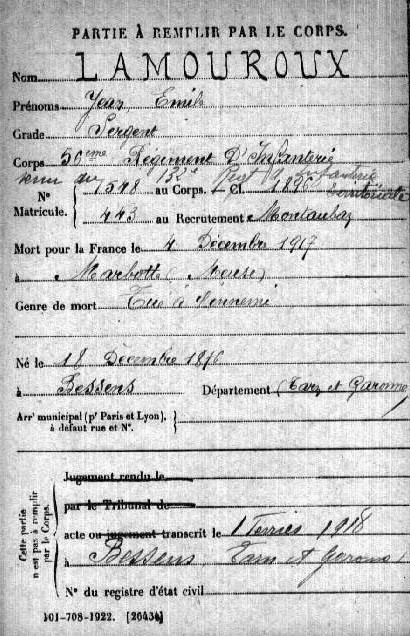 PARTIE À REMPLIR PAR LE CORPS.
Nom LAMOUROUX
Prénoms Jean Emile
Grade Sergent
Corps 56ème Régiment D'Infanterie
venu du 132e Regt Infanterie territoriale
N° Matricule. { 1548 au Corps. Cl. 1896
443 au Recrutement Montauban
Mort pour la France le 4 Décembre 1917
à Marbotte (Meuse)
Genre de mort Tué à l'ennemi
Né le 18 Décembre 1876
à Bessens Département (Tarn et Garonne)
Arrt municipal (pr Paris et Lyon), à défaut rue et N°.
Cette partie n'est pas à remplir par le Corps.
Jugement rendu le
par le Tribunal de
acte ou jugement transcrit le 1 Février 1918
à Bessens Tarn et Garonne
N° du registre d'état civil
101-708-1922. [26434]